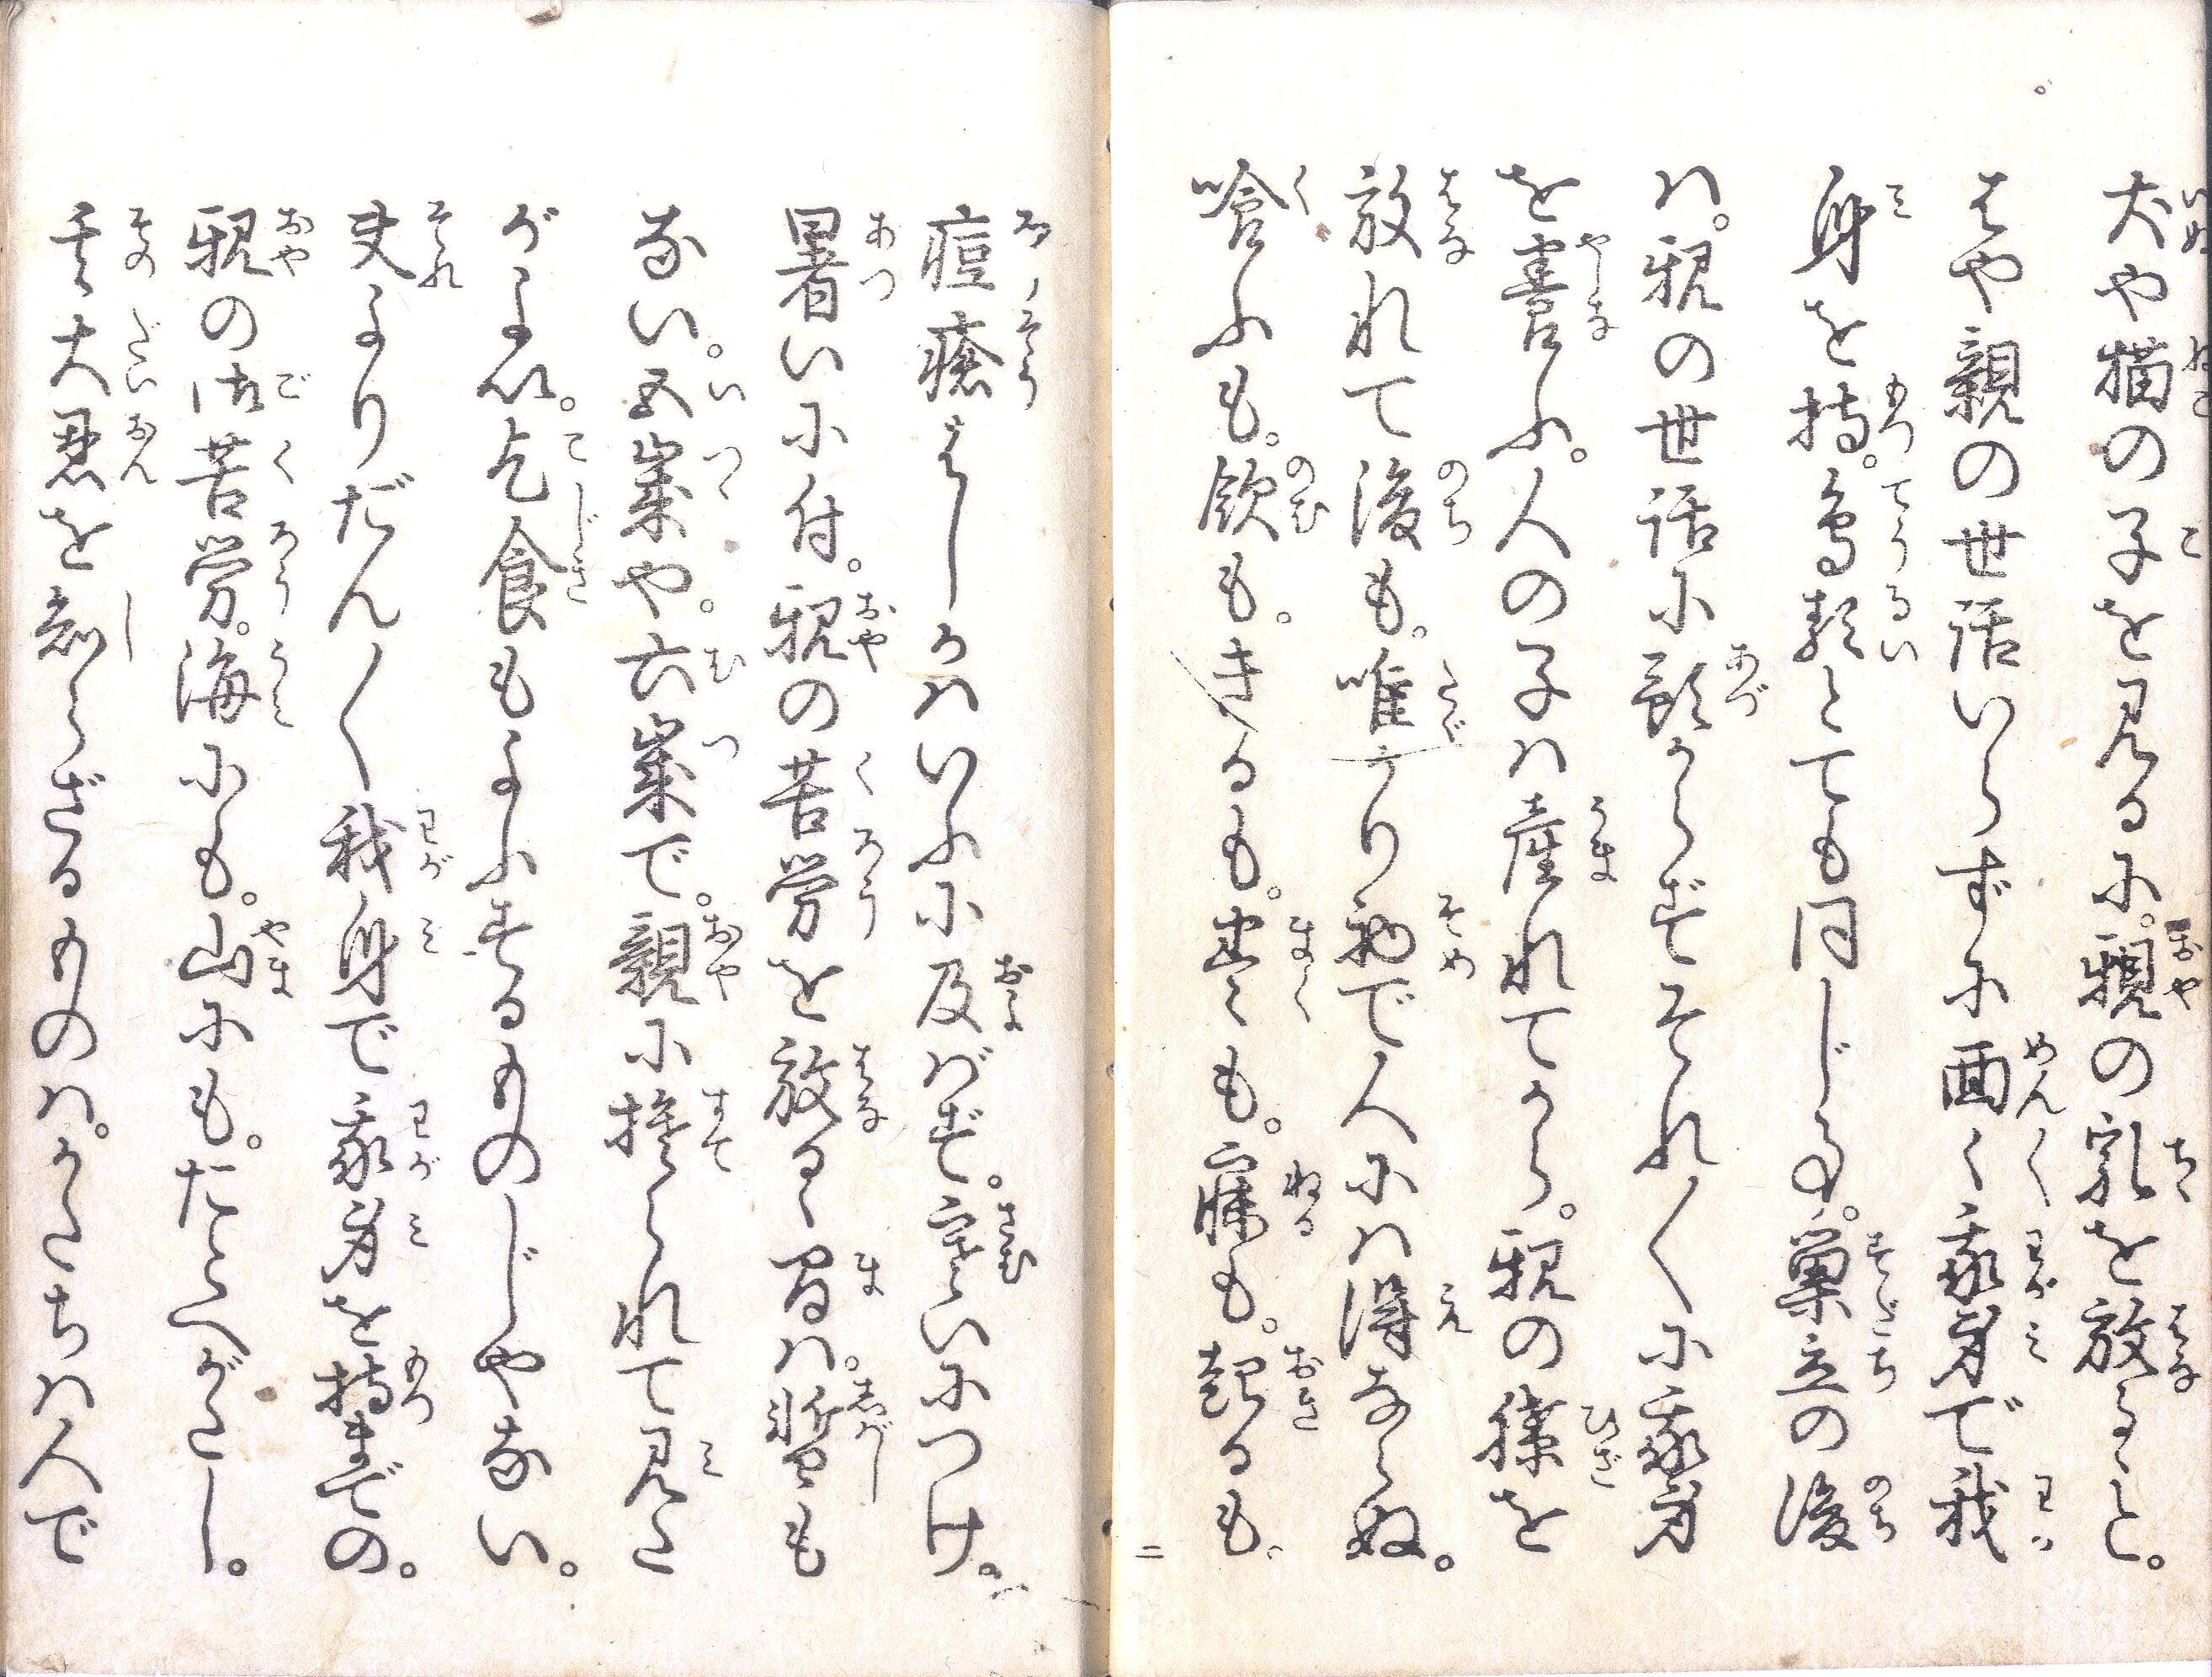 犬や猫の子を見るに。親の乳を放るゝと。
はや親の世話いらずに面〻我身で我
身を持。鳥類とても同じ事。巣立の後
ハ。親の世話に預からずそれ〳〵に我身
を養ふ。人の子ハ産れてから。親の膝を
放れて後も。唯一り初で人にハ得ならぬ。
喰ふも。飲も。きるも。巻くも。寐も。起るも
疱瘡はしかハいふに及ばず。寒いにつけ。
暑いに付。親の苦労を放るゝ間ハ。暫も
ない。五歳や。六歳で。親に捨られて見た
がよい。乞食もよふするものじやない。
夫よりだん〳〵我身で我身を持までの。
親の御苦労。海にも。山にも。たとへがたし。
其大恩を知らざるものハ。かたちハ人で
二